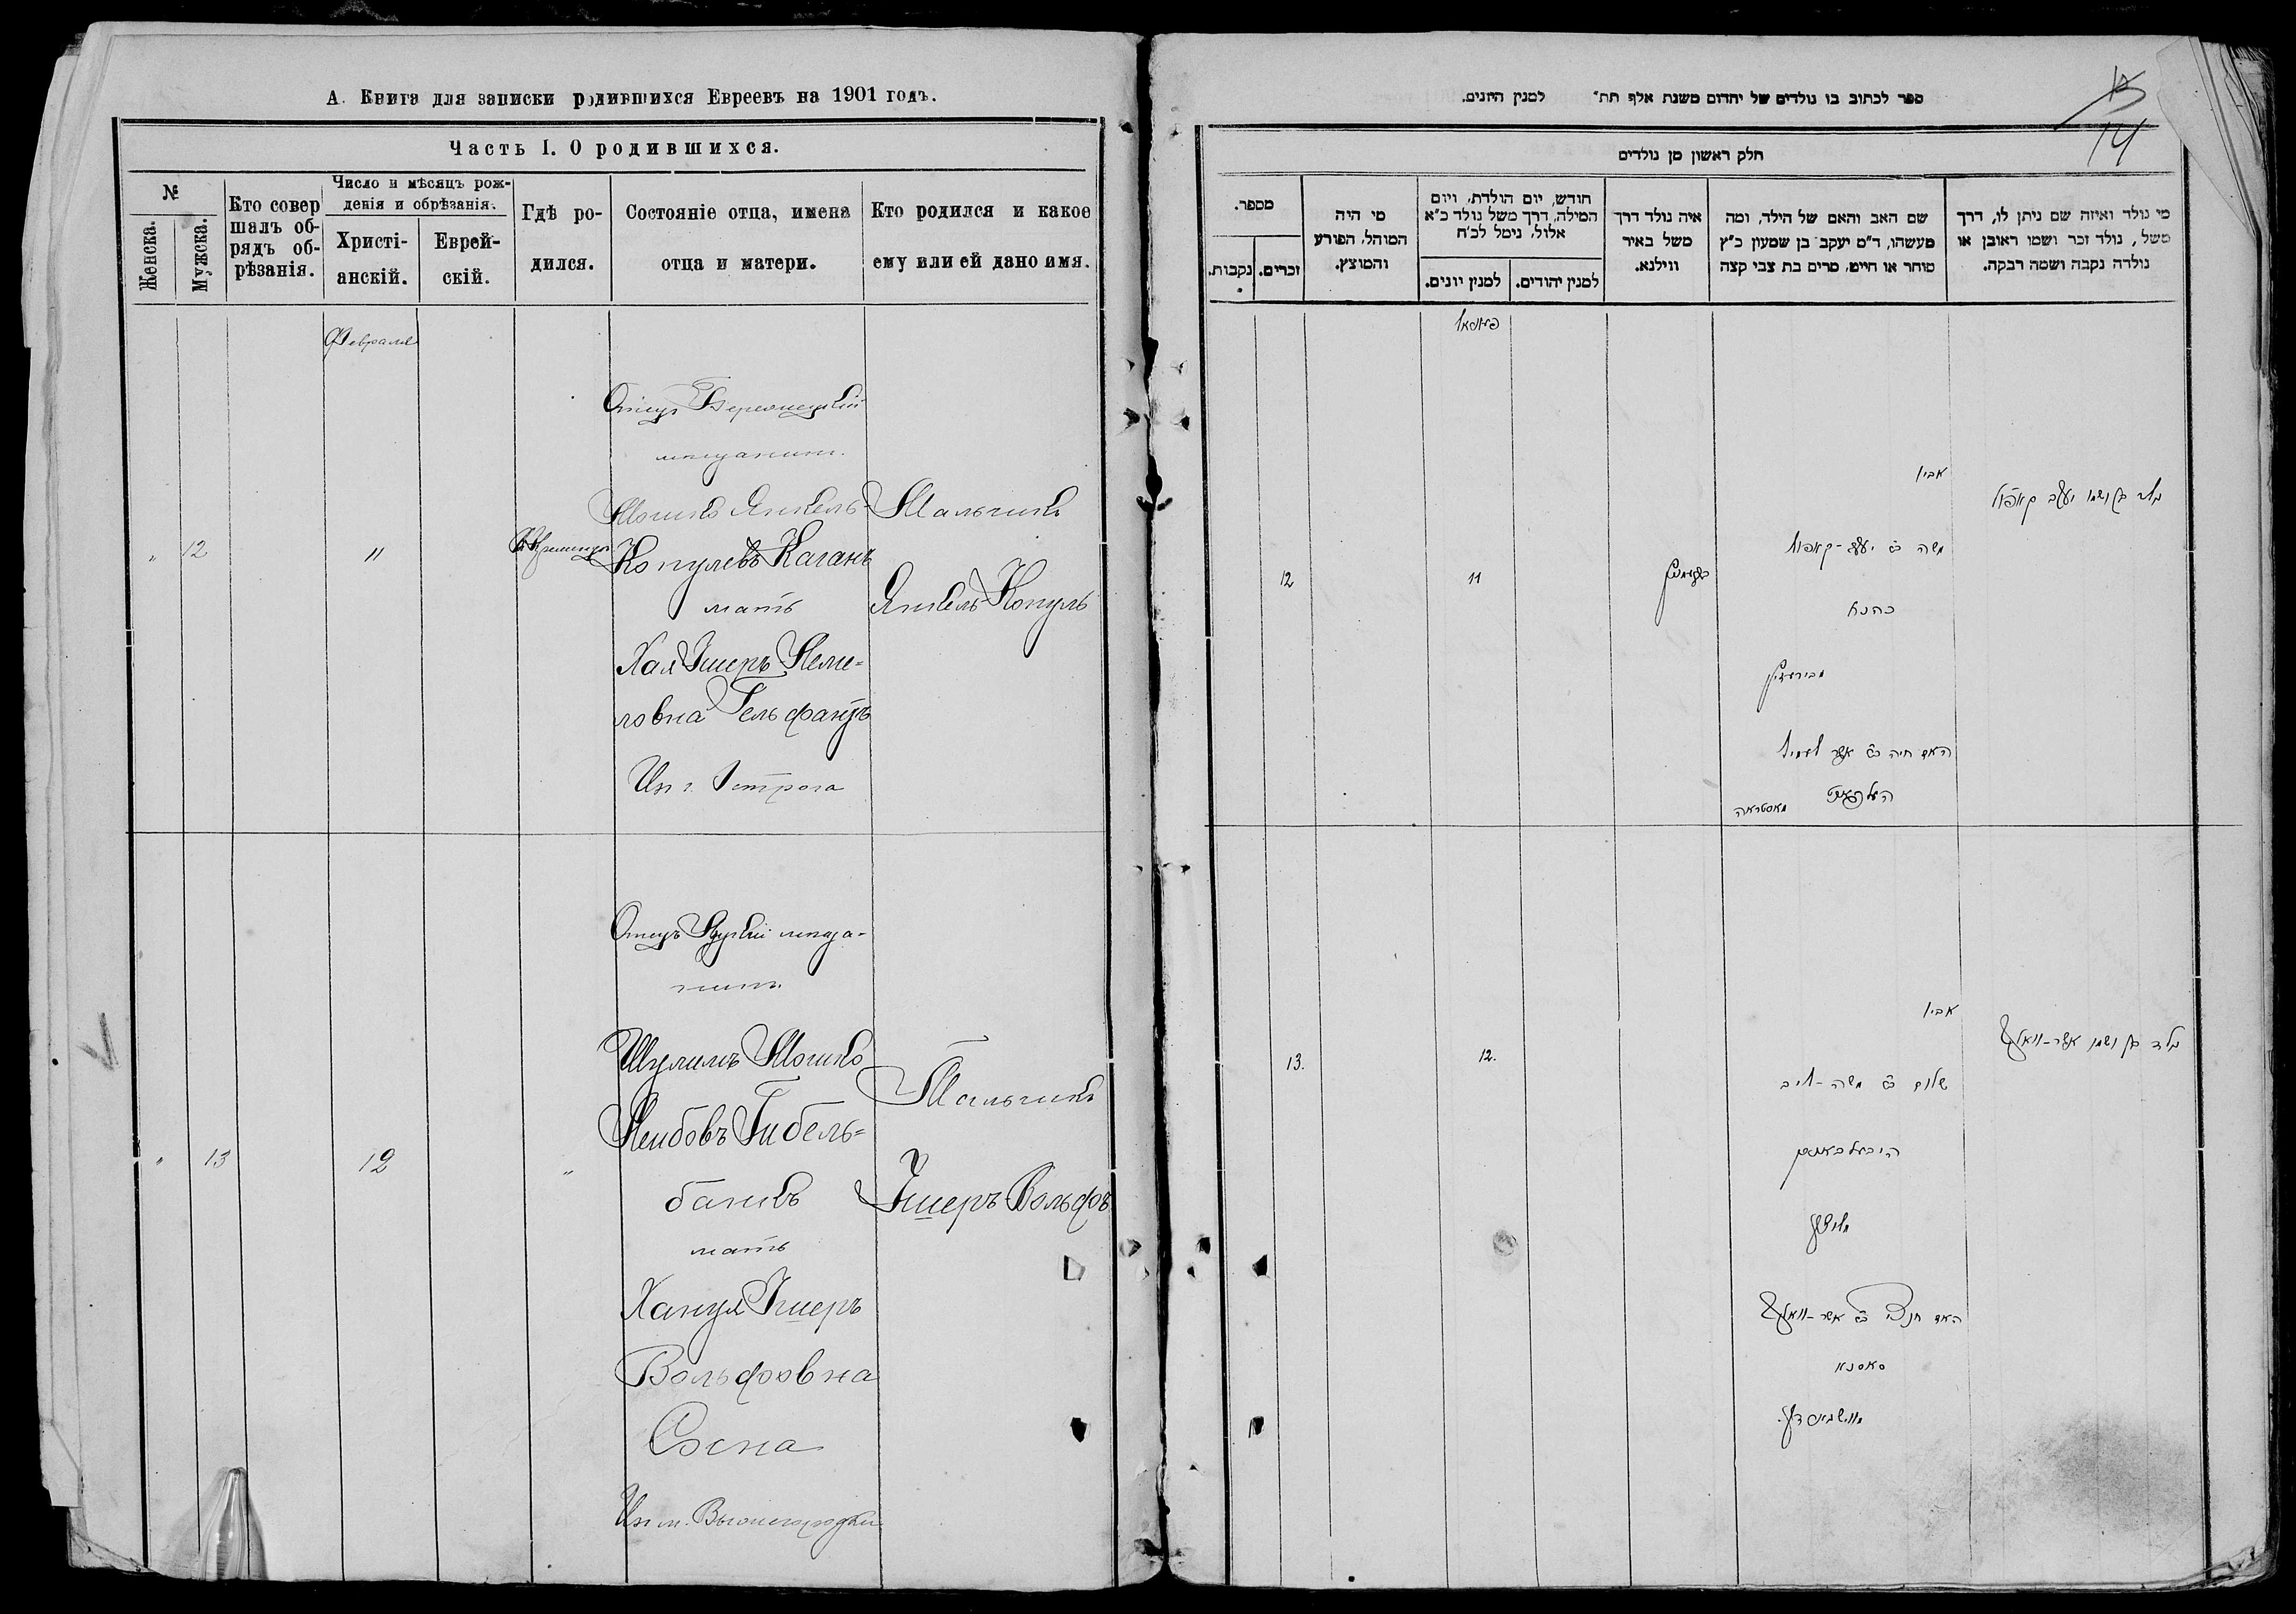 А. Книга для записки родившихся Евреевъ на 1901 годъ.
Часть I. О родившихся.
№
Женска.
Мужска.
Кто совер
шалъ об-
рядъ об-
рѣзанія.
Число и мѣсяцъ рож-
денія и обрѣзанія.
Христі-
анскій.
Еврей-
скій.
Гдѣ ро-
дился.
Состояніе отца, имена
отца и матери.
Кто родился и какое
ему или ей дано имя.
Февраля
"
12
11
Отецъ
мѣщанинъ.
Мошко Янкель-
Копулевъ Каганъ
мать
Хая Ишеръ Леми-
ловна Гельфандъ
Изъ г. Острога
Мальчикъ
Янкель-Копуль
"
13
12
"
Отецъ Луцкій мѣща-
нинъ.
Шулимъ Мошко
Лейбовъ Гибель-
банкъ
мать
Ханця Ишеръ
Вольфовна
Сосна
Из м. Вышегородки
Мальчикъ
Ишеръ-Вольфъ
ספר לכתוב בו נולדים של יהדום משנת אלף תת״ למנין היונים.
13
14
חלק ראשון מן נולדים
מספר.
נקבות.
זכרים.
מי היה
המוהל, הפורע
והמוצץ.
חודש, יום הולדת, ויום
המילה, דרך משל נולד כ״א
אלול, נימל לכ״ח
למנין יונים.
למנין יהודים.
איה נולד דרך
משל באיר
ווילנא.
שם האב והאם של הילד, ומה
מעשהו, ד״מ יעקב בן שמעון כ״ץ
סוחר או חייט, מרים בת צבי קצה
מי נולד ואיזה שם ניתן לו, דרך
משל, נולד זכר ושמו ראובן או
נולדה נקבה ושמה רבקה.
12
11
אביו
משה ב״ר יעקב-קאפול
כהנא
האם חיה ב״ר אשר לעמיל
העלפאנד
מאסטראה
נולד בן ושמו יעקב קאפול
13.
12.
אביו
שלום ב״ר משה-ליב
היבעלבאנק
מלוצק
האם חנציי ב״ר אשר-וואלף
סאסנא
נולד בן ושמו אשר-וואלף